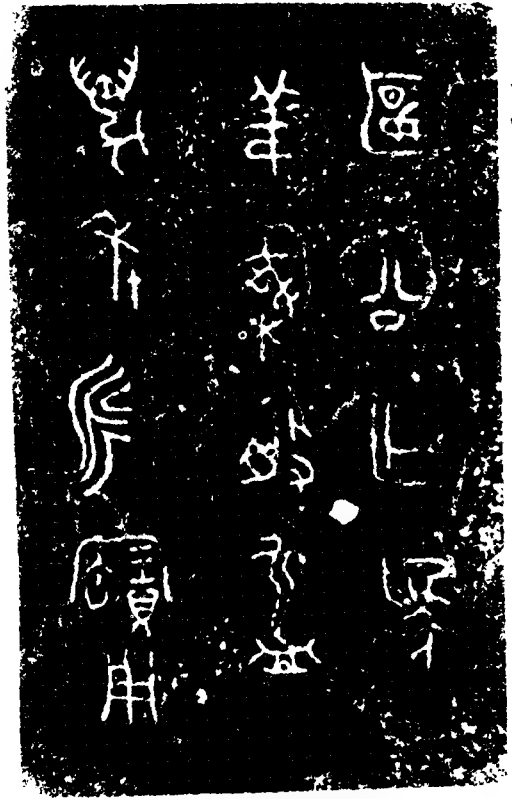 匽公乍爲
姜乘般匜
萬年永寶用